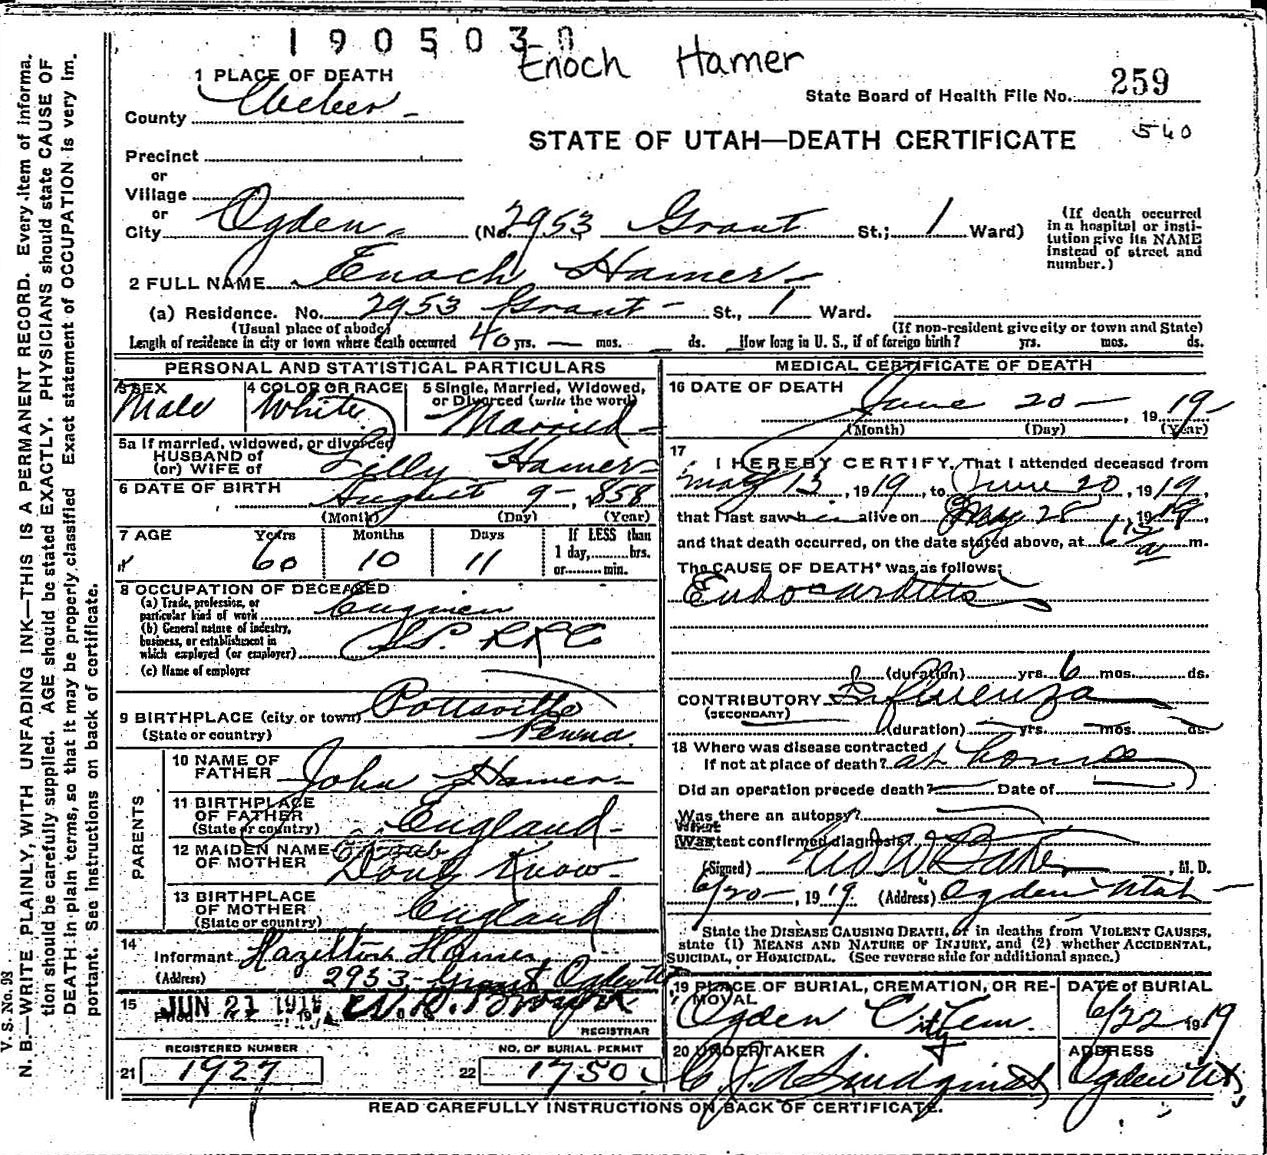 1905030
Enoch Hamer
1 PLACE OF DEATH
County Weber
State Board of Health File No. 259
STATE OF UTAH—DEATH CERTIFICATE 540
Precinct
or
Village
or
City Ogden (No. 2953 Grant St.; 1 Ward)
(If death occurred in a hospital or institution give its NAME instead of street and number.)
2 FULL NAME Enoch Hamer
(a) Residence. No. 2953 Grant St., 1 Ward.
(Usual place of abode) (If non-resident give city or town and State)
Length of residence in city or town where death occurred 40 yrs. — mos. ds. How long in U. S., if of foreign birth? yrs. mos. ds.
PERSONAL AND STATISTICAL PARTICULARS
3 SEX Male
4 COLOR OR RACE White
5 Single, Married, Widowed, or Divorced (write the word) Married
5a If married, widowed, or divorced
HUSBAND of
(or) WIFE of Lilly Hamer
6 DATE OF BIRTH August 9 - 1858
(Month) (Day) (Year)
7 AGE Years 60 Months 10 Days 11
If LESS than
1 day, hrs.
or min.
8 OCCUPATION OF DECEASED
(a) Trade, profession, or
particular kind of work
(b) General nature of industry,
business, or establishment in
which employed (or employer) S.P. RR Co
(c) Name of employer
9 BIRTHPLACE (city or town) Pottsville
(State or country) Penna.
PARENTS
10 NAME OF
FATHER John Hamer
11 BIRTHPLACE
OF FATHER
(State or country) England
12 MAIDEN NAME
OF MOTHER Dont Know
13 BIRTHPLACE
OF MOTHER
(State or country) England
14
Informant Hazelton Hamer
(Address) 2953 Grant Ogden
15 Filed JUN 21 191
REGISTRAR
REGISTERED NUMBER
21 1927
NO. OF BURIAL PERMIT
22 1750
MEDICAL CERTIFICATE OF DEATH
16 DATE OF DEATH
June 20 — , 1919
(Month) (Day) (Year)
17
I HEREBY CERTIFY, That I attended deceased from
May 13, 1919, to June 20, 1919,
that I last saw him alive on May 28, 1919,
and that death occurred, on the date stated above, at 6 a m.
The CAUSE OF DEATH* was as follows:
Endocarditis
(duration) yrs. 6 mos. ds.
CONTRIBUTORY Influenza
(SECONDARY)
(duration) yrs. mos. ds.
18 Where was disease contracted
If not at place of death? at home
Did an operation precede death? — Date of —
Was there an autopsy?
What test confirmed diagnosis?
(Signed) , M. D.
6/20, 1919 (Address) Ogden Utah
State the DISEASE CAUSING DEATH, or in deaths from VIOLENT CAUSES,
state (1) MEANS AND NATURE OF INJURY, and (2) whether ACCIDENTAL,
SUICIDAL, or HOMICIDAL. (See reverse side for additional space.)
19 PLACE OF BURIAL, CREMATION, OR REMOVAL
Ogden City Cem.
DATE of BURIAL
6/22 1919
20 UNDERTAKER
Lindquist
ADDRESS
Ogden Ut
READ CAREFULLY INSTRUCTIONS ON BACK OF CERTIFICATE.
V. S. No. 98
N. B.—WRITE PLAINLY, WITH UNFADING INK—THIS IS A PERMANENT RECORD. Every item of informa-
tion should be carefully supplied. AGE should be stated EXACTLY. PHYSICIANS should state CAUSE OF
DEATH in plain terms, so that it may be properly classified Exact statement of OCCUPATION is very im-
portant. See Instructions on back of certificate.